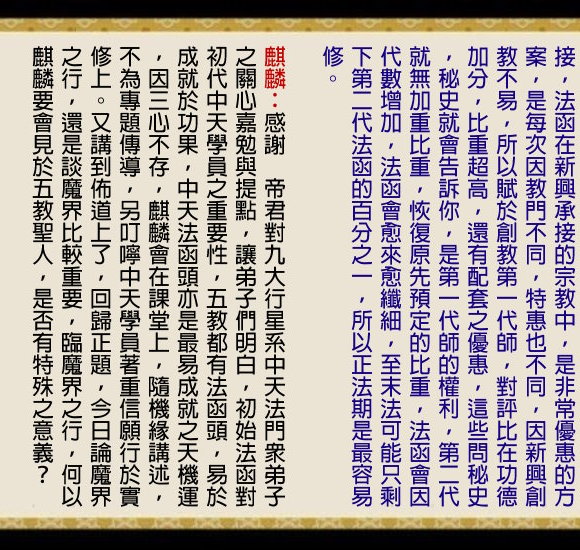 接，法函在新興承接的宗教中，是非常優惠的方
案，是每次因教門不同，特惠也不同，因新興創
教不易，所以賦於創教第一代師，對評比在功德
加分，比重超高，還有配套之優惠，這些問秘史
，秘史就會告訴你，是第一代師的權利，第二代
就無加重比重，恢復原先預定的比重，法函會因
代數增加，法函會愈來愈纖細，至末法可能只剩
下第二代法函的百分之一，所以正法期是最容易
修。
麒麟：感謝　帝君對九大行星系中天法門衆弟子
之關心嘉勉與提點，讓弟子們明白，初始法函對
初代中天學員之重要性，五教都有法函頭，易於
成就於功果，中天法函頭亦是最易成就之天機運
，因三心不存，麒麟會在課堂上，隨機緣講述，
不為專題傳導，另叮嚀中天學員著重信願行於實
修上。又講到佈道上了，回歸正題，今日論魔界
之行，還是談魔界比較重要，臨魔界之行，何以
麒麟要會見於五教聖人，是否有特殊之意義？